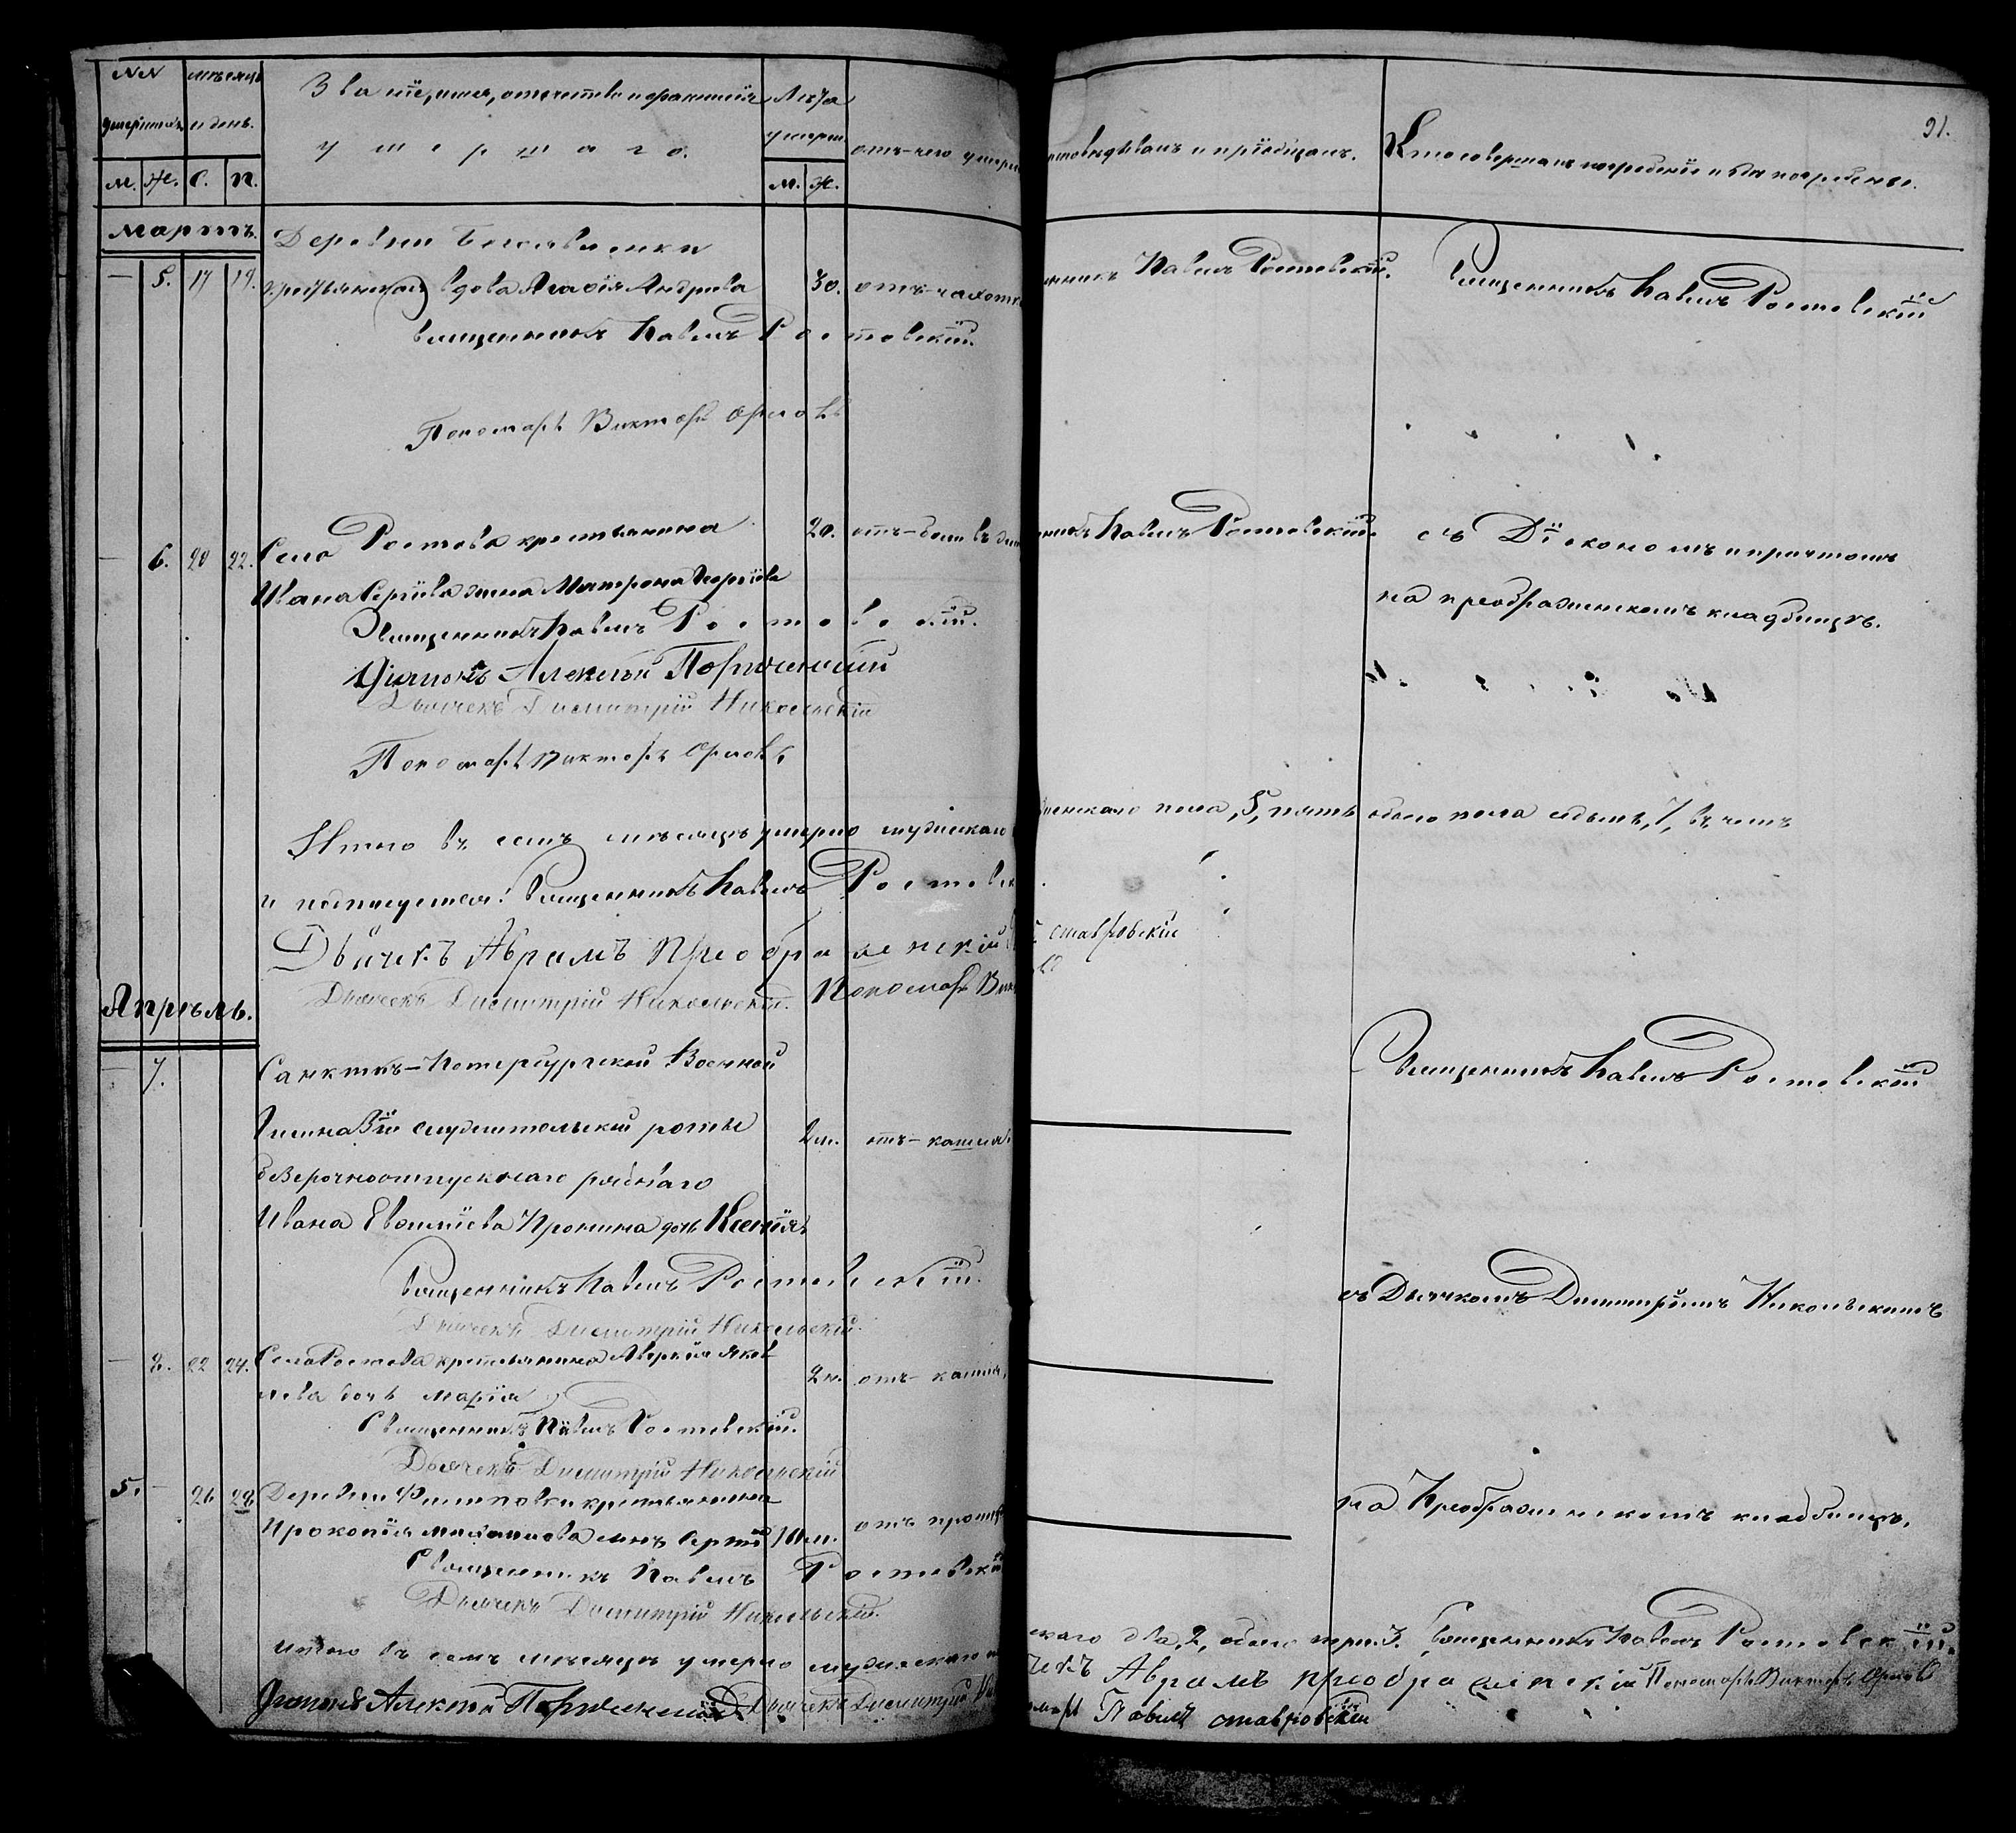 NN
мѣсяцъ
Званіе, имя, отчество и фамилія
Лѣта
умершихъ
и день.
умершаго.
умерш.
отъ чего умеръ
М. Ж. С. П.
М. Ж.
Мартъ.
Деревни
5. 17 19.
крестьянская вдова Андреева
30.
отъ чахотки
Священникъ Павелъ Ростовскій.
Пономарь Викторъ Орловъ
6. 20 22.
Села Ростова крестьянина
20.
отъ
Ивана Сергіева жена Матрона
Священникъ Павелъ Ростовскій.
Діаконъ Алексѣй
Дьячекъ Димитрій Никольскій
Пономарь Викторъ Орловъ
Итого въ семъ мѣсяцѣ умерло мужескаго
и подписуемся: Священникъ Павелъ Ростовск
Дьячекъ Аврамъ Преображенскій
Дьячекъ Димитрій Никольскій. Пономарь Вик
Апрѣль.
7.
Санктъ-Петербургской Военной
роты
2 н.
отъ кашля
безсрочноотпускнаго рядоваго
Ивана Пронина дочь Ксенія
Священникъ Павелъ Ростовскій.
Дьячекъ Димитрій Никольскій.
8. 22 24.
Села Ростова крестьянина Аверкія Яков
2 н.
отъ кашля
лева дочь Марія
Священникъ Павелъ Ростовскій.
Дьячекъ Димитрій Никольскій
5. 26 28
Деревни Филиповки крестьянина
Прокопія Михаилова сынъ
отъ
Священникъ Павелъ Ростовскій
Дьячекъ Димитрій Никольскій.
Итого въ семъ мѣсяцѣ умерло мужескаго
Діаконъ Алексѣй Дьячекъ Димитрій
91.
исповѣдывалъ и пріобщалъ.
Кто совершалъ погребеніе и гдѣ погребены.
Павелъ Ростовскій.
Священникъ Павелъ Ростовскій
Павелъ Ростовскій.
съ Діакономъ и причтомъ
на Преображенскомъ кладбищѣ.
женскаго пола, 5, пять обоего пола седмь, 7, въ чемъ
ставровскій
Священникъ Павелъ Ростовскій
съ Дьячкомъ Димитріемъ Никольскимъ
на Преображенскомъ кладбищѣ.
скаго два, 2, обоего три. 3. Священникъ Павелъ Ростовскій.
чекъ Аврамъ Преображенскій Пономарь Викторъ Орловъ
Павелъ ставровскій